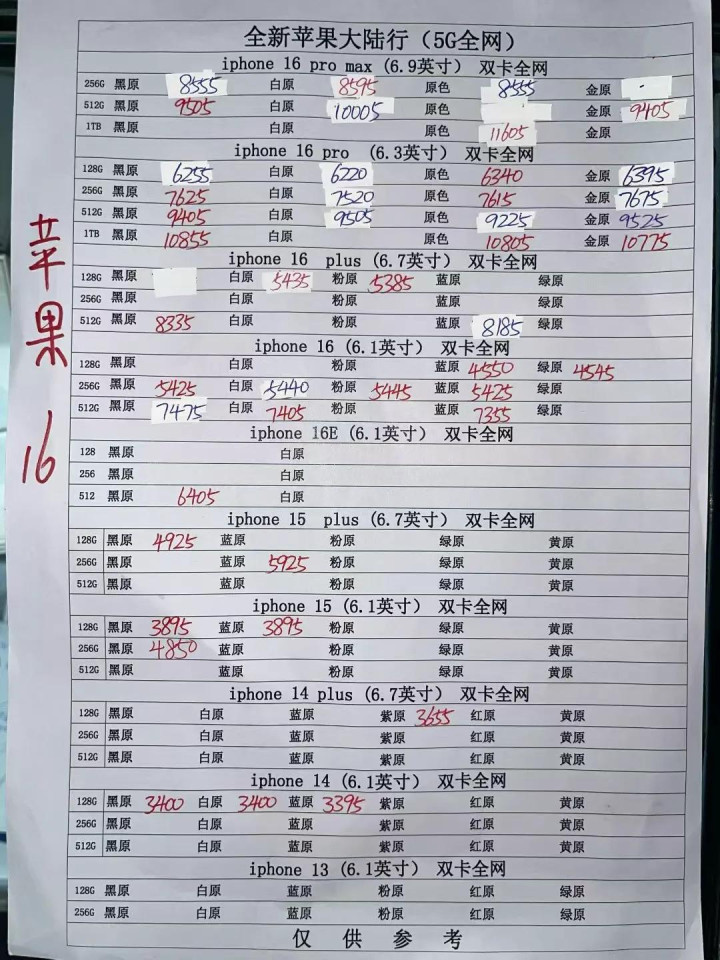 全新苹果大陆行（5G全网）
iphone 16 pro max (6.9英寸) 双卡全网
256G 黑原 8555 白原 8595 原色 8555 金原
512G 黑原 9505 白原 10005 原色 金原 9405
1TB 黑原 白原 原色 11605 金原
iphone 16 pro (6.3英寸) 双卡全网
128G 黑原 6255 白原 6220 原色 6340 金原 6395
256G 黑原 7625 白原 7520 原色 7615 金原 7675
512G 黑原 9405 白原 9505 原色 9225 金原 9525
1TB 黑原 10855 白原 原色 10805 金原 10775
iphone 16 plus (6.7英寸) 双卡全网
128G 黑原 白原 5435 粉原 5385 蓝原 绿原
256G 黑原 白原 粉原 蓝原 绿原
512G 黑原 8335 白原 粉原 蓝原 8185 绿原
iphone 16 (6.1英寸) 双卡全网
128G 黑原 白原 粉原 蓝原 4550 绿原 4545
256G 黑原 5425 白原 5440 粉原 5445 蓝原 5425 绿原
512G 黑原 7475 白原 7405 粉原 蓝原 7355 绿原
iphone 16E (6.1英寸) 双卡全网
128 黑原 白原
256 黑原 白原
512 黑原 6405 白原
iphone 15 plus (6.7英寸) 双卡全网
128G 黑原 4925 蓝原 粉原 绿原 黄原
256G 黑原 蓝原 5925 粉原 绿原 黄原
512G 黑原 蓝原 粉原 绿原 黄原
iphone 15 (6.1英寸) 双卡全网
128G 黑原 3895 蓝原 3895 粉原 绿原 黄原
256G 黑原 4850 蓝原 粉原 绿原 黄原
512G 黑原 蓝原 粉原 绿原 黄原
iphone 14 plus (6.7英寸) 双卡全网
128G 黑原 白原 蓝原 紫原 3655 红原 黄原
256G 黑原 白原 蓝原 紫原 红原 黄原
512G 黑原 白原 蓝原 紫原 红原 黄原
iphone 14 (6.1英寸) 双卡全网
128G 黑原 3400 白原 3400 蓝原 3395 紫原 红原 黄原
256G 黑原 白原 蓝原 紫原 红原 黄原
512G 黑原 白原 蓝原 紫原 红原 黄原
iphone 13 (6.1英寸) 双卡全网
128G 黑原 白原 蓝原 粉原 红原 绿原
256G 黑原 白原 蓝原 粉原 红原 绿原
仅 供 参 考
苹果 16